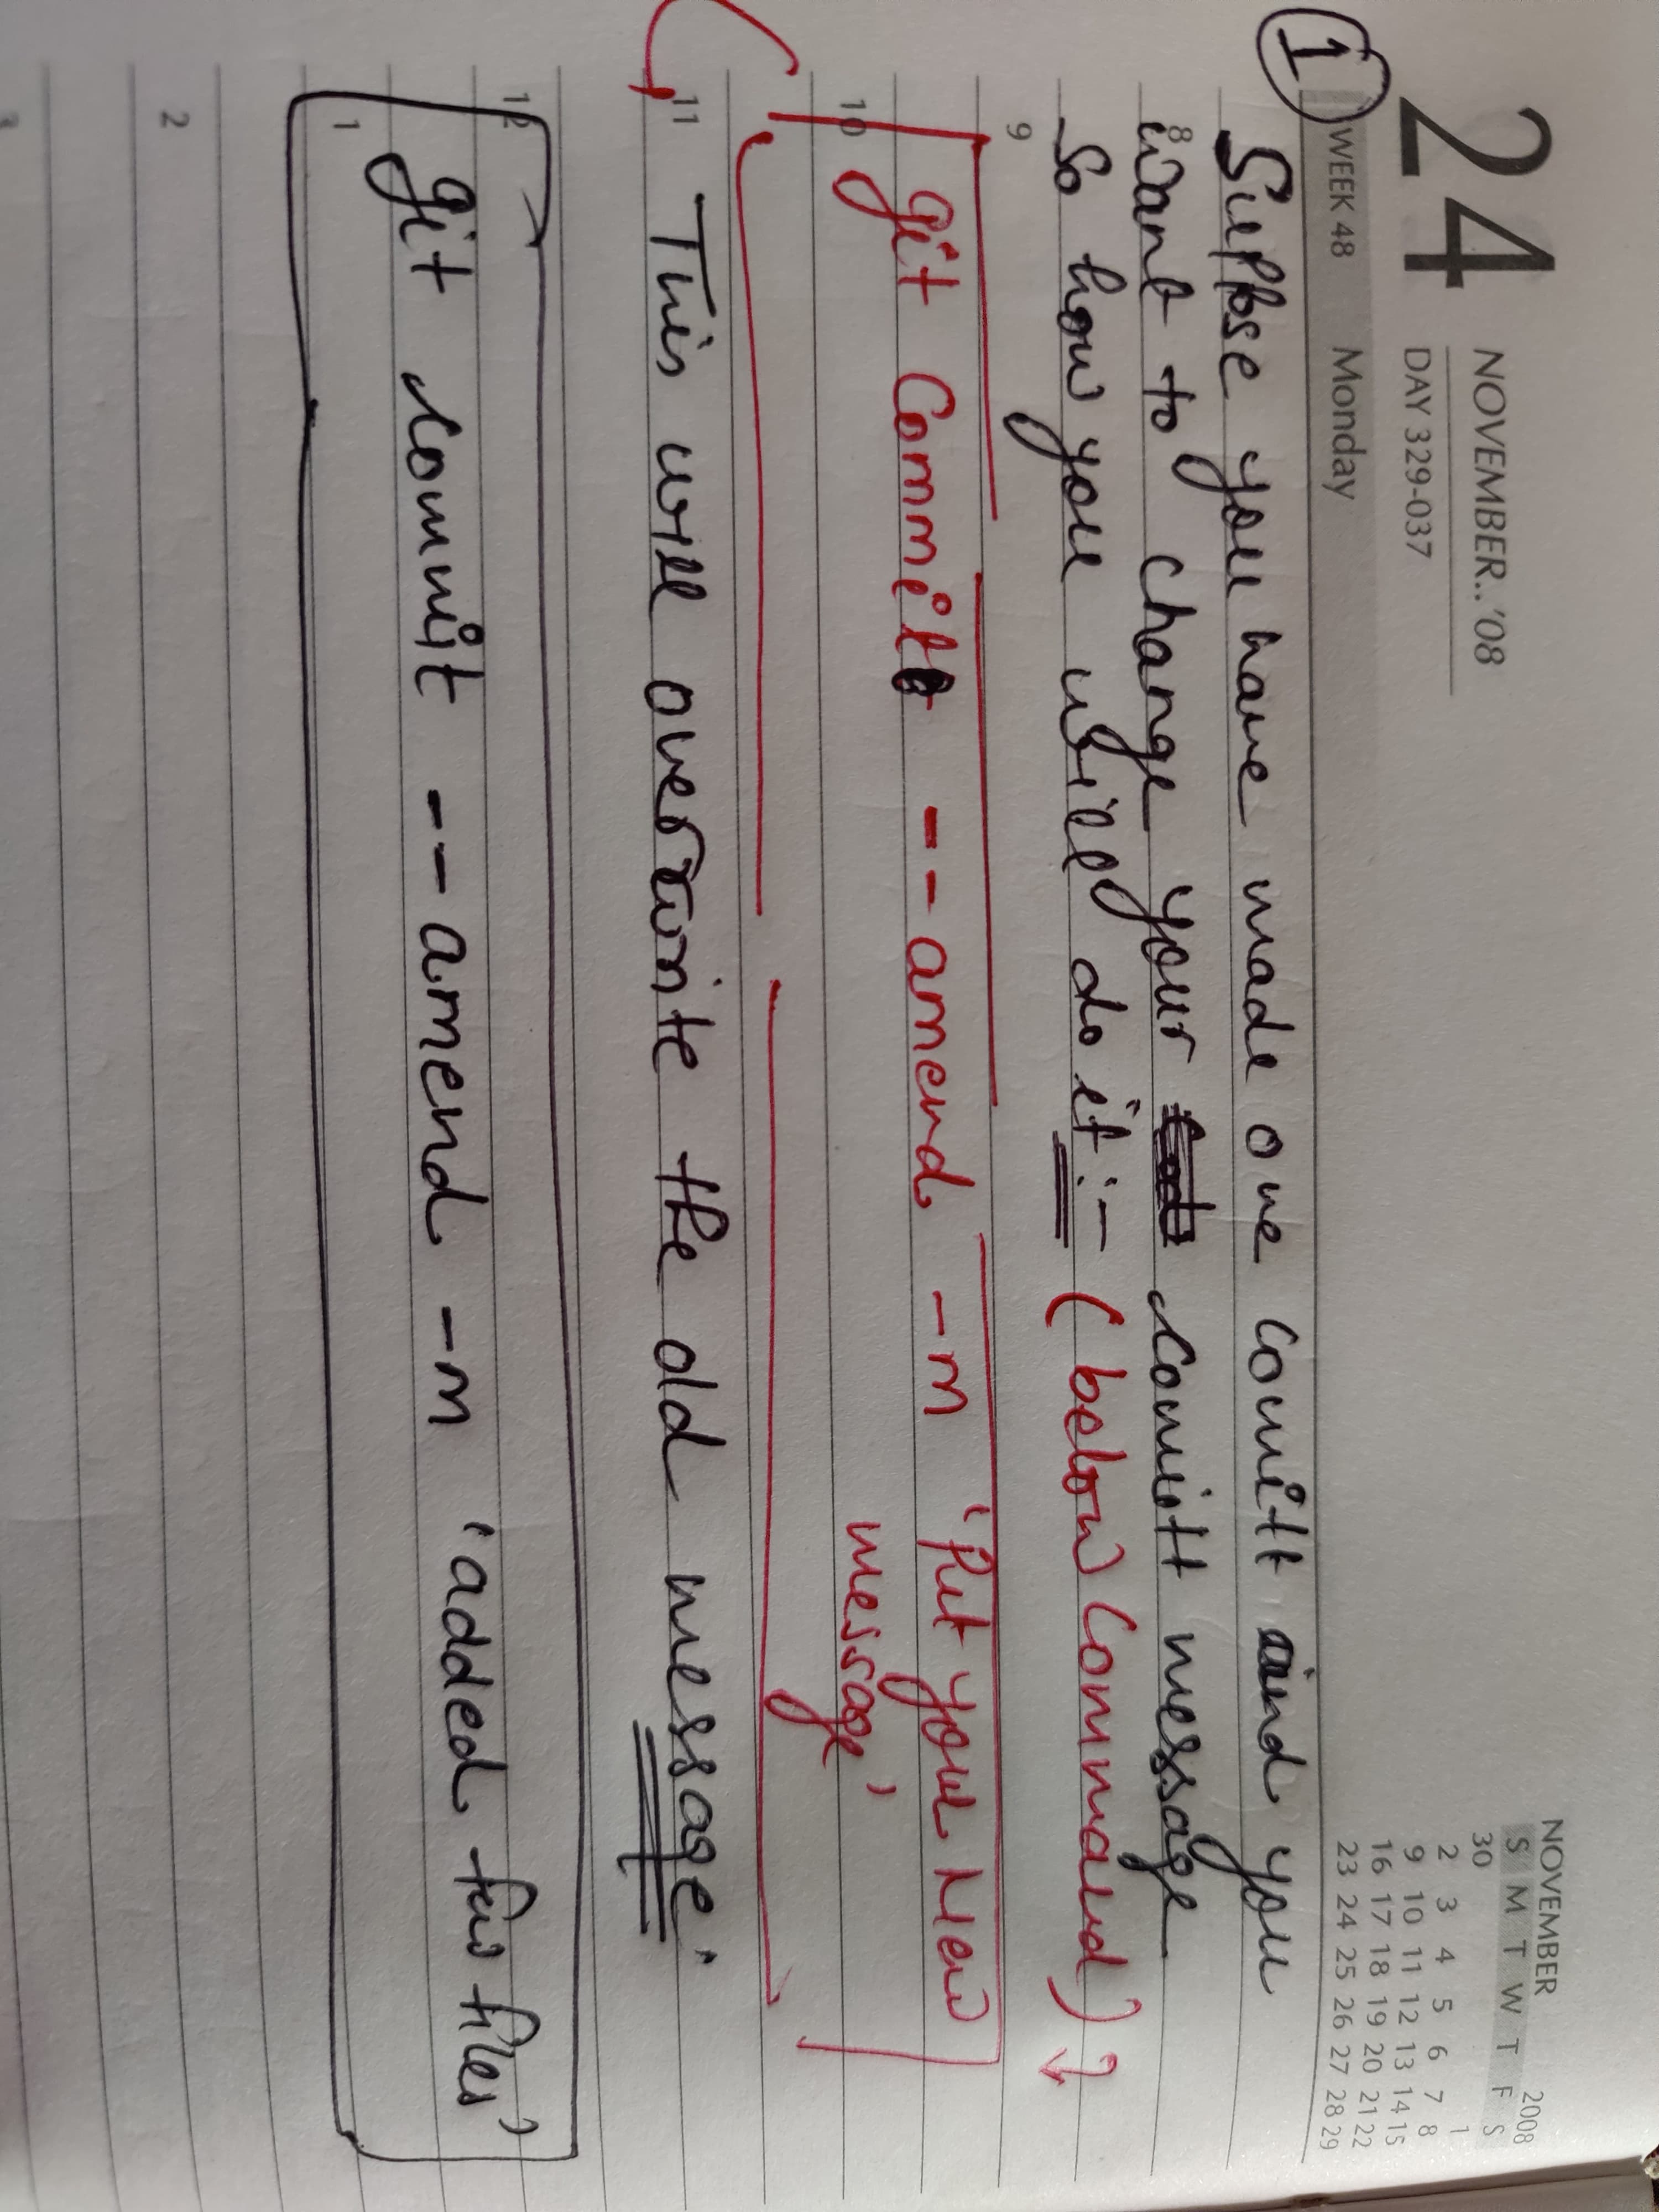 24
NOVEMBER..'08
DAY 329-037
WEEK 48 Monday
NOVEMBER 2008
S M T W T F S
30 1
2 3 4 5 6 7 8
9 10 11 12 13 14 15
16 17 18 19 20 21 22
23 24 25 26 27 28 29
1
Suppose you have made one comitt and you
8 want to change your comitt message
So how you will do it :- ( below Command )
9
git Commit --amend -m 'Put your New
10 message'
11 This will overwrite the old message'.
12
git commit --amend -m 'added two files'
1
2
3